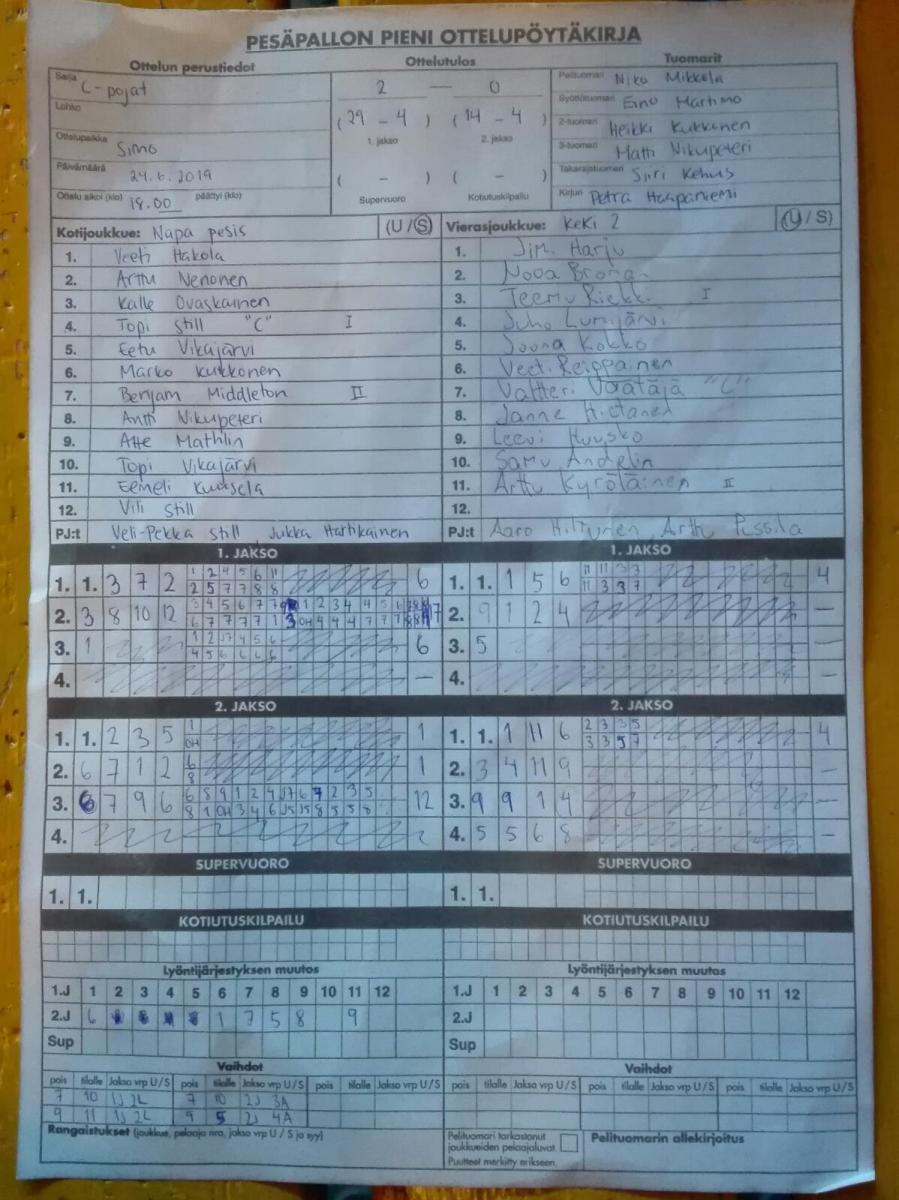 PESÄPALLON PIENI OTTELUPÖYTÄKIRJA
Ottelun perustiedot
Ottelutulos
Tuomarit
Sarja C-pojat
Lohko
Ottelupaikka Simo
Päivämäärä 24.6.2019
Ottelu alkoi (klo) 18.00 päättyi (klo)
2 — 0
(29 - 4) (14 - 4)
1. jakso 2. jakso
( - ) ( - )
Supervuoro Kotiutuskilpailu
Pelituomari Niko Mikkola
Syöttötuomari Eino Martimo
2-tuomari Heikki Kukkinen
3-tuomari Matti Nikupeteri
Takarajatuomari Siiri Kehus
Kirjuri Petra Haapaniemi
Kotijoukkue: Napa pesis (U / S)
1. Veeti Hakola
2. Arttu Nenonen
3. Kalle Ovaskainen
4. Topi Still "C" I
5. Eetu Vikajärvi
6. Marko Kukkonen
7. Benjam Middleton II
8. Antti Nikupeteri
9. Atte Mathlin
10. Topi Vikajärvi
11. Eemeli
12. Vili Still
PJ:t Veli-Pekka Still, Jukka Hartikainen
Vierasjoukkue: KeKi 2 (U / S)
1. Harju
2. Nooa
3. Teemu Riekki I
4. Juho Lumijärvi
5. Joona Kokko
6. Reippainen
7. Valtteri Väätäjä "C"
8. Janne Hietanen
9. Leevi Huusko
10. Samu Andelin
11. Arttu Kyröläinen II
12.
PJ:t Aaro Hiltunen,
1. JAKSO
1. 1. 3 7 2 1 2 4 5 6 11 6
2 5 7 7 8 8
2. 3 8 10 12 17
3. 1 6
4. —
1. JAKSO
1. 1. 1 5 6 11 11 3 3 4
11 3 3 7
2. 9 1 2 4 —
3. 5 —
4. —
2. JAKSO
1. 1. 2 3 5 1 1
0H
2. 6 7 1 2 6 1
8
3. 6 7 9 6 12
4.
2. JAKSO
1. 1. 1 11 6 2 3 3 5 4
3 3 5 7
2. 3 4 11 9 —
3. 9 9 1 4 —
4. 5 5 6 8 —
SUPERVUORO
1. 1.
SUPERVUORO
1. 1.
KOTIUTUSKILPAILU
KOTIUTUSKILPAILU
Lyöntijärjestyksen muutos
1.J 1 2 3 4 5 6 7 8 9 10 11 12
2.J 6 1 7 5 8 9
Sup
Lyöntijärjestyksen muutos
1.J 1 2 3 4 5 6 7 8 9 10 11 12
2.J
Sup
Vaihdot
pois tilalle Jakso vrp U/S pois tilalle Jakso vrp U/S pois tilalle Jakso vrp U/S
7 10 1J 2L 7 10 2J 3A
9 11 1J 2L 9 5 2J 4A
Vaihdot
pois tilalle Jakso vrp U/S pois tilalle Jakso vrp U/S pois tilalle Jakso vrp U/S
Rangaistukset (joukkue, pelaaja nro, jakso vrp U / S ja syy)
Pelituomari tarkastanut
joukkueiden pelaajaluvat.
Puutteet merkitty erikseen.
Pelituomarin allekirjoitus